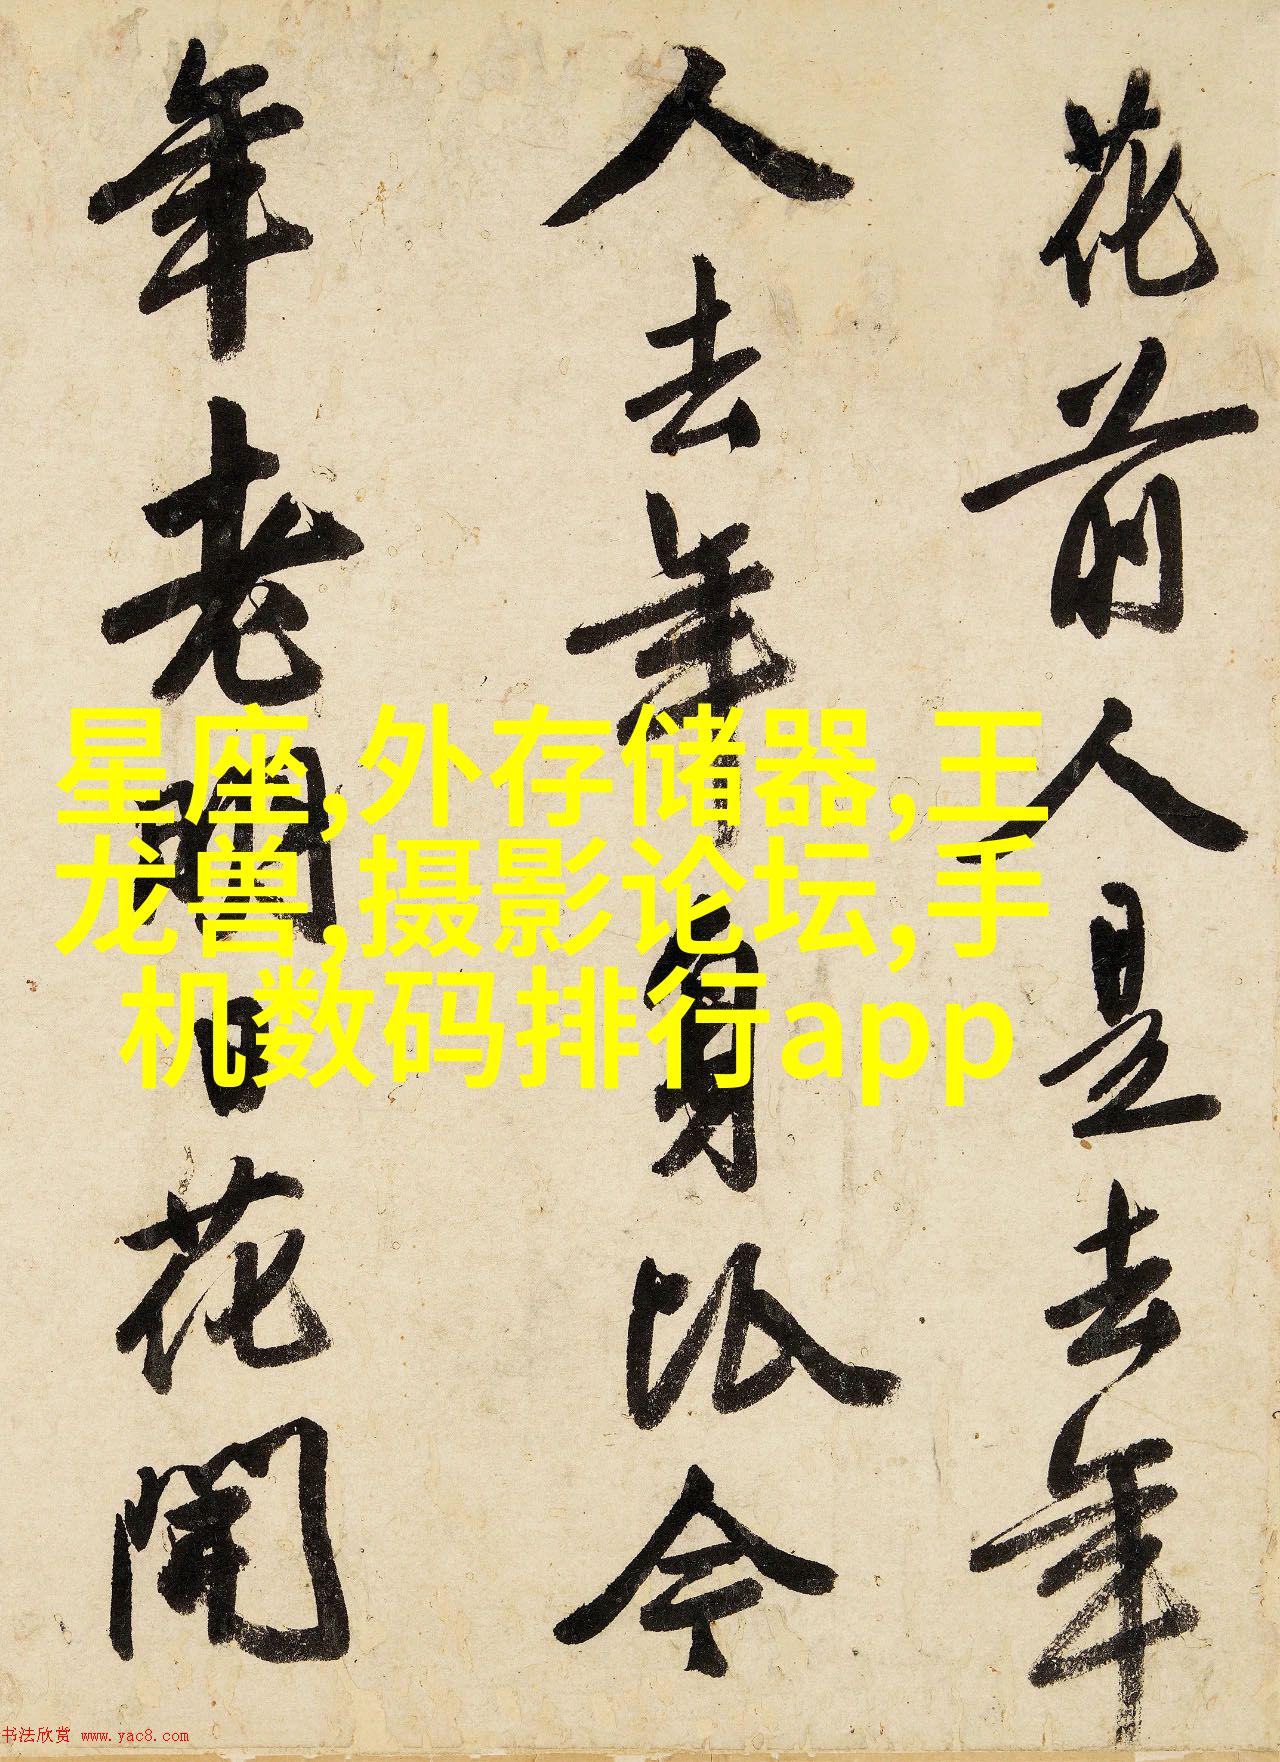 花前人是去年
人去年身比今
年老明日花開
星座,外存储器,王
龙兽,摄影论坛,手
机数码排行app
书法欣赏 www.yac8.com